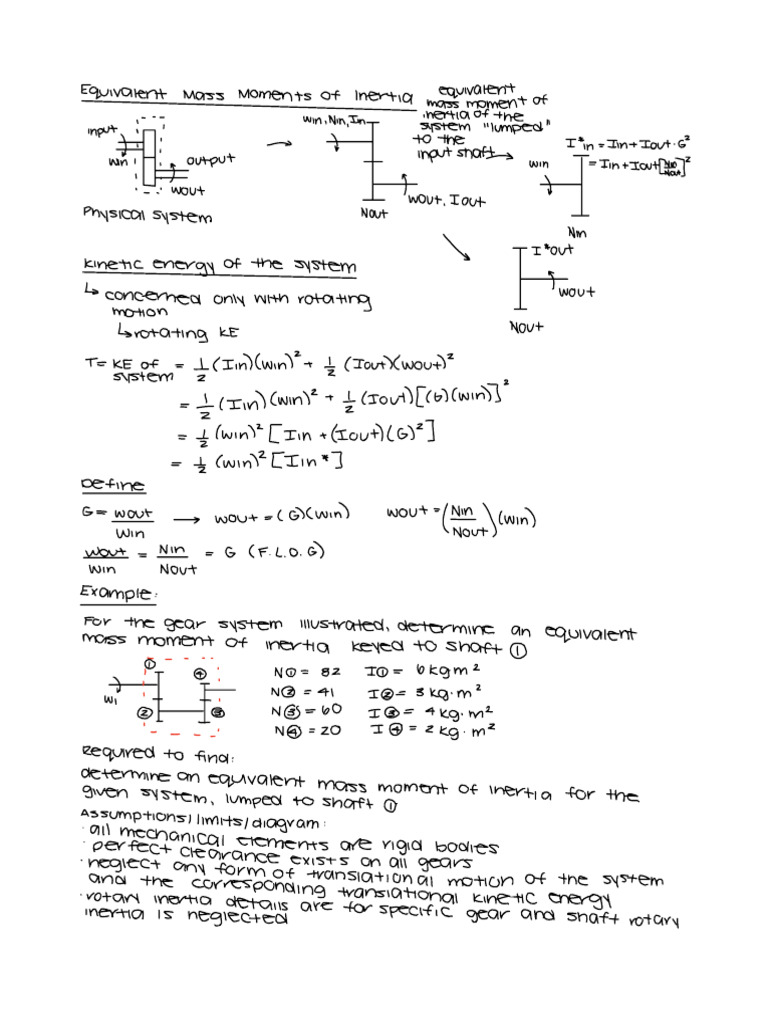 Equivalent Mass Moments of Inertia
equivalent
mass moment of
inertia of the
system "lumped"
to the
input shaft
input
win
output
wout
Physical system
win, Nin, Iin
wout, Iout
Nout
I*in = Iin + Iout · G²
= Iin + Iout [Nin/Nout]²
win
Nin
I*out
wout
Nout
Kinetic energy of the system
↳ concerned only with rotating
motion
↳ rotating KE
T = KE of system = 1/2 (Iin)(win)² + 1/2 (Iout)(wout)²
= 1/2 (Iin)(win)² + 1/2 (Iout)[(G)(win)]²
= 1/2 (win)² [Iin + (Iout)(G)²]
= 1/2 (win)² [Iin*]
Define
G = wout/win → wout = (G)(win) wout = (Nin/Nout)(win)
wout/win = Nin/Nout = G (F.L.O.G)
Example:
For the gear system illustrated, determine an equivalent
mass moment of inertia keyed to shaft ①
①
④
w1
②
③
N① = 82 I① = 6 kg m²
N② = 41 I② = 3 kg·m²
N③ = 60 I③ = 4 kg·m²
N④ = 20 I④ = 2 kg·m²
Required to find:
determine an equivalent mass moment of inertia for the
given system, lumped to shaft ①
Assumptions/limits/diagram:
· all mechanical elements are rigid bodies
· perfect clearance exists on all gears
· neglect any form of translational motion of the system
and the corresponding translational kinetic energy
· rotary inertia details are for specific gear and shaft rotary
inertia is neglected